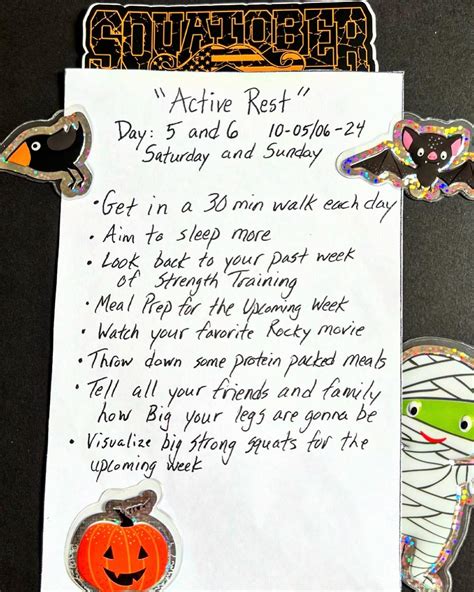 SQUATOBER
"Active Rest"
Day: 5 and 6 10-05/06-24
Saturday and Sunday
• Get in a 30 min walk each day
• Aim to sleep more
• Look back to your past week
of Strength Training
• Meal Prep for the Upcoming Week
• Watch your favorite Rocky movie
• Throw down some protein packed meals
• Tell all your friends and family
how Big your legs are gonna be
• Visualize big strong squats for the
upcoming week